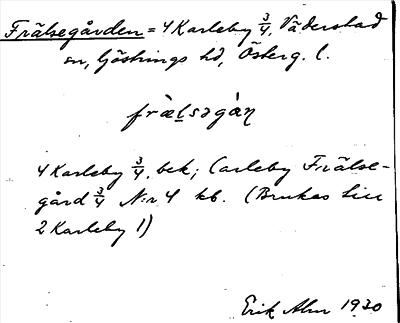 Frälsegården = 4 Karleby 3/4, Väderstad
sn, Göstrings hd, Österg. l.
frælsəgàn
4 Karleby 3/4, bek; Carleby Frälse-
gård 3/4 N:r 4 kb. (Brukas
2 Karleby 1)
Erik Alm 1930